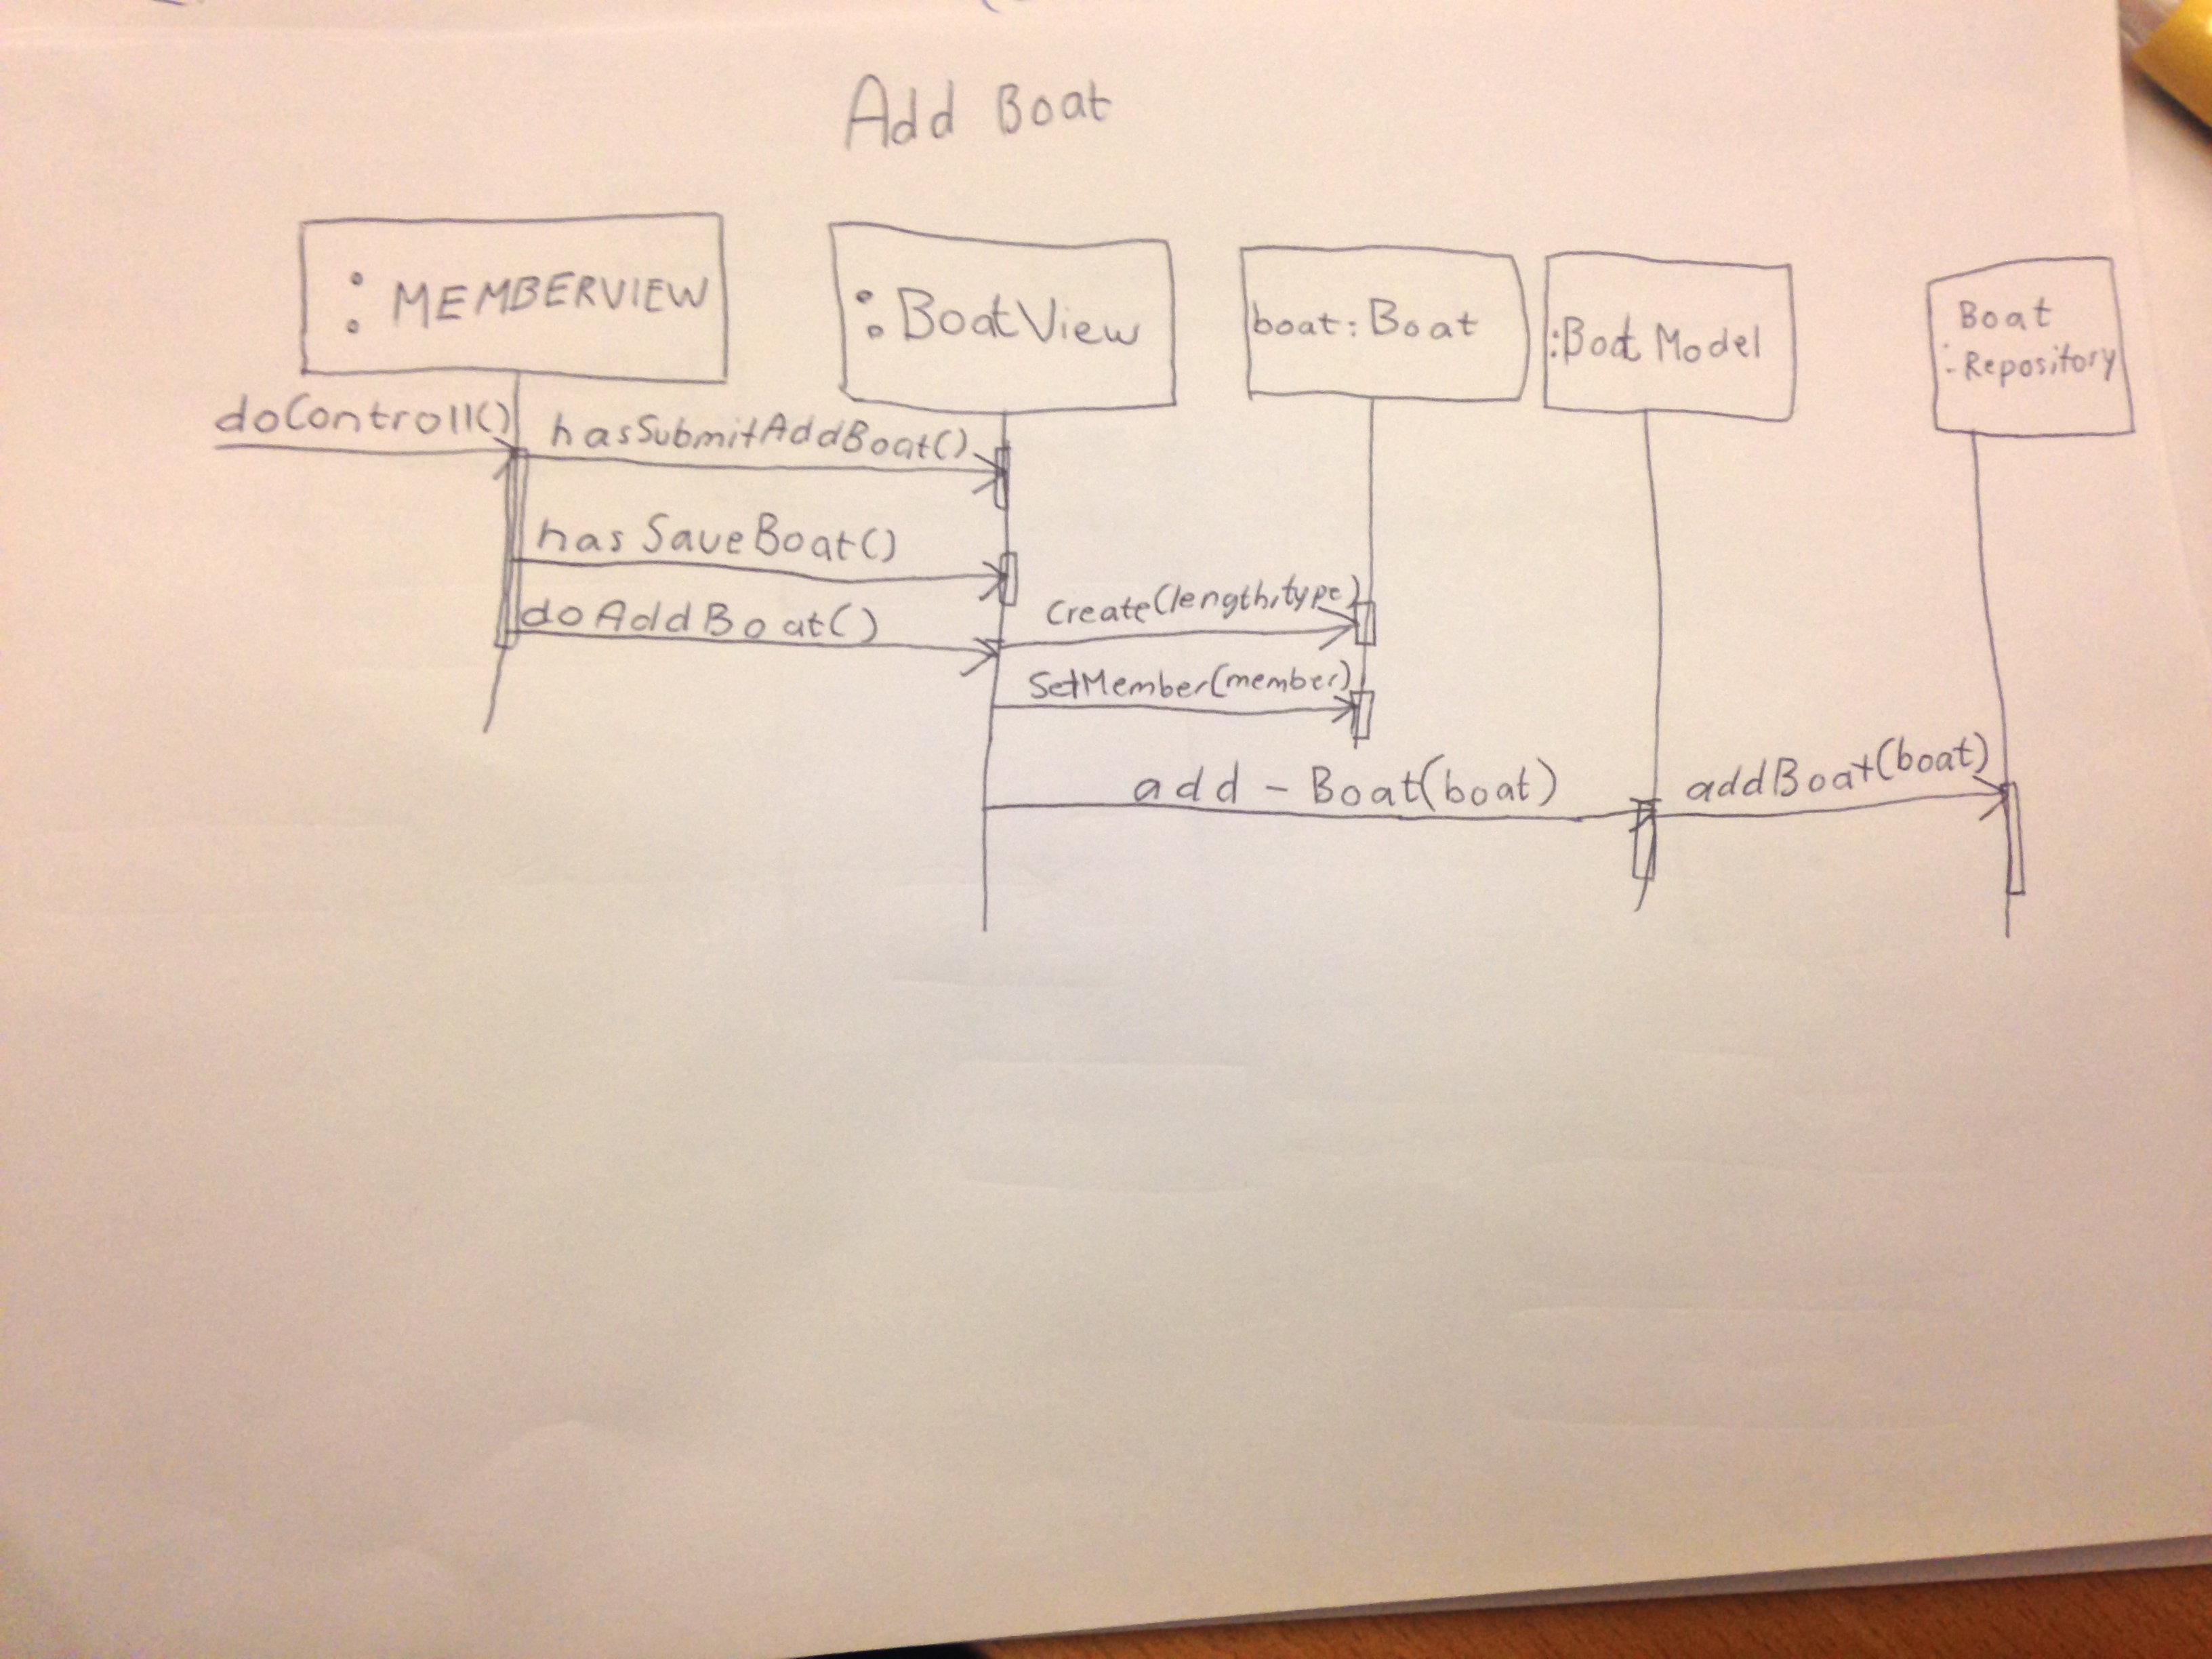 Add Boat
: MEMBERVIEW
: BoatView
boat: Boat
:Boat Model
Boat
:-Repository
doControll()
hasSubmitAddBoat()
has SaveBoat()
doAddBoat()
Create(length,type)
SetMember(member)
add - Boat(boat)
addBoat(boat)